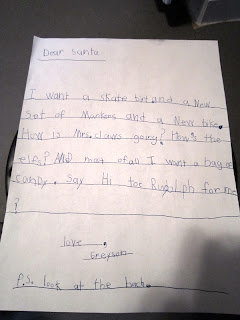 Dear Santa
I want a skate
and a New
Set of Markers and a New bike.
How is Mrs. claws going? How's the
elfs? AND most of all I want a bag of
candy. Say Hi to Rudolph for me
?
love,
Greyson
P.S. look at the back.